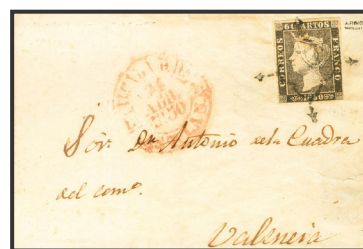 6 CUARTOS
CORREOS
FRANCO
1850
24
ABR
1850
Sor. Dn Antonio de la Cuadra
del como.
Valencia